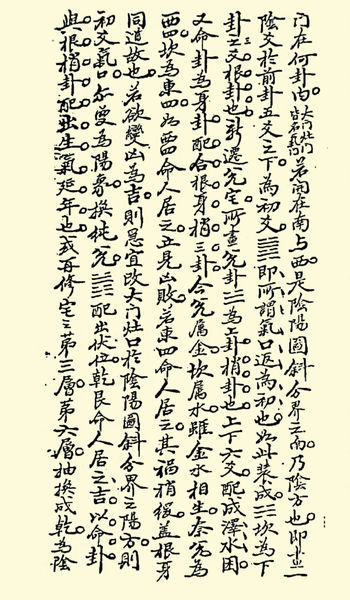 门在何卦内大门灶门皆名氣口若闭在南与西是陰陽圖斜分界之内乃陰方也即畫一
陰爻於前卦五爻之下為初爻䷮即所謂氣口返為初也如此装成䷮坎為下
卦之爻根卦也新遷兊宅所畫兊卦☱為上卦梢卦也上下六爻配成澤水困
又命卦為身卦配合根身梢三卦今兊屬金坎属水雖金水相生奈兊為
西四坎為東四如西四命人居之立見凶敗若東四命人居之其禍稍缓盖根身
同道故也若欲變凶為吉則急宜改大门灶口於陰陽圖斜分界之陽方則
初爻氣口亦变為陽象換純兊䷹配出伏位乾艮命人居之吉以命卦
與根梢卦配出生氣延年也或再修宅之第三層第六層抽換成乾為陰